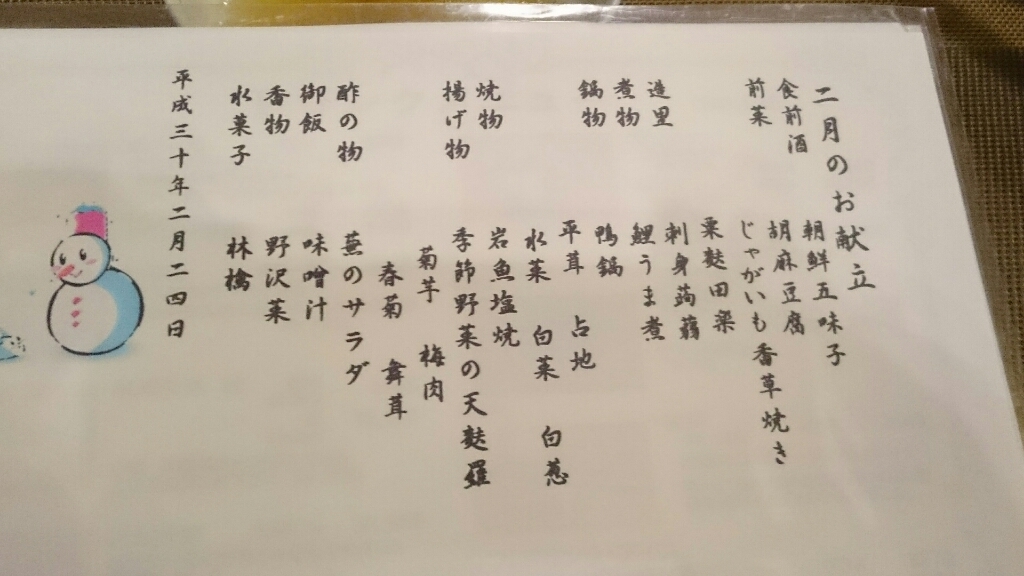 二月のお献立
食前酒 朝鮮五味子
前菜 胡麻豆腐
じゃがいも香草焼き
粟麩田楽
造里 刺身蒟蒻
煮物 鯉うま煮
鍋物 鴨鍋
平茸 占地
水菜 白菜 白葱
焼物 岩魚塩焼
揚げ物 季節野菜の天麩羅
菊芋 梅肉
春菊 舞茸
酢の物 蕪のサラダ
御飯 味噌汁
香物 野沢菜
水菓子 林檎
平成三十年二月二四日